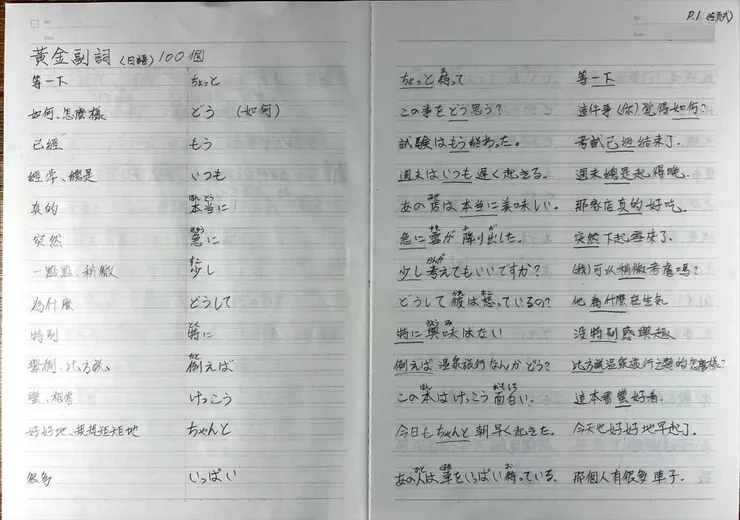 P.1
黃金副詞(日語)100個
等一下 ちょっと ちょっと待って 等一下
如何、怎麼樣 どう (如何) この事をどう思う? 這件事(你)覺得如何?
已經 もう 試験はもう終わった。 考試已經結束了.
經常、總是 いつも 週末はいつも遅く起きる. 週末總是起得晚.
真的 本当に あの店は本当に美味しい. 那家店真的好吃.
突然 急に 急に雪が降り出した. 突然下起雪來了.
一點點、稍微 少し 少し考えてもいいですか? (我)可以稍微考慮嗎?
為什麼 どうして どうして彼は怒っているの? 他為什麼在生氣
特別 特に 特に興味はない 沒特別感興趣
舉例、比方說 例えば 例えば温泉旅行なんかどう? 比方說溫泉旅行之類的怎麼樣?
蠻、相當 けっこう この本はけっこう面白い. 這本書蠻好看.
好好地、規規矩矩地 ちゃんと 今日もちゃんと朝早く起きた. 今天也好好地早起了.
很多 いっぱい あの人は車をいっぱい持っている. 那個人有很多車子.